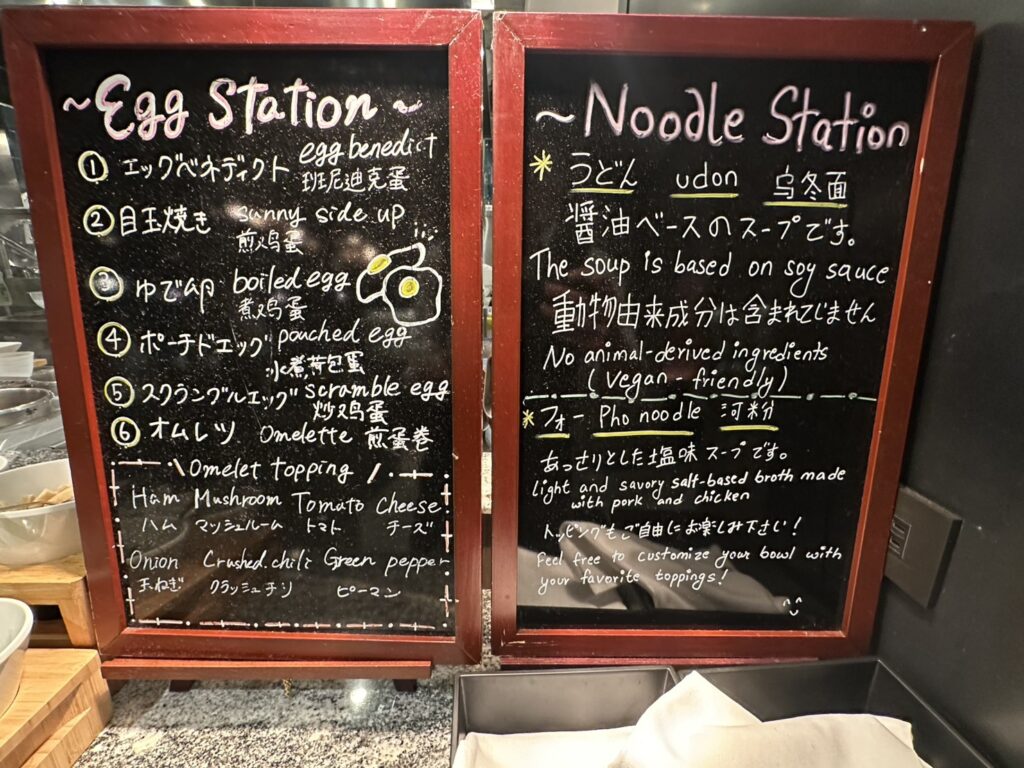 ~Egg Station~
① エッグベネディクト egg benedict
班尼迪克蛋
② 目玉焼き sunny side up
煎鸡蛋
③ ゆで卵 boiled egg
煮鸡蛋
④ ポーチドエッグ pouched egg
水煮荷包蛋
⑤ スクランブルエッグ scramble egg
炒鸡蛋
⑥ オムレツ Omelette 煎蛋卷
\Omelet topping/
Ham Mushroom Tomato Cheese
ハム マッシュルーム トマト チーズ
Onion Crushed.chili Green pepper
玉ねぎ クラッシュチリ ピーマン
~Noodle Station
* うどん udon 乌冬面
醤油ベースのスープです。
The soup is based on soy sauce
動物由来成分は含まれていません
No animal-derived ingredients
(vegan-friendly)
* フォー Pho noodle 河粉
あっさりとした塩味スープです。
light and savory salt-based broth made
with pork and chicken
トッピングもご自由にお楽しみ下さい!
Feel free to customize your bowl with
your favorite toppings!